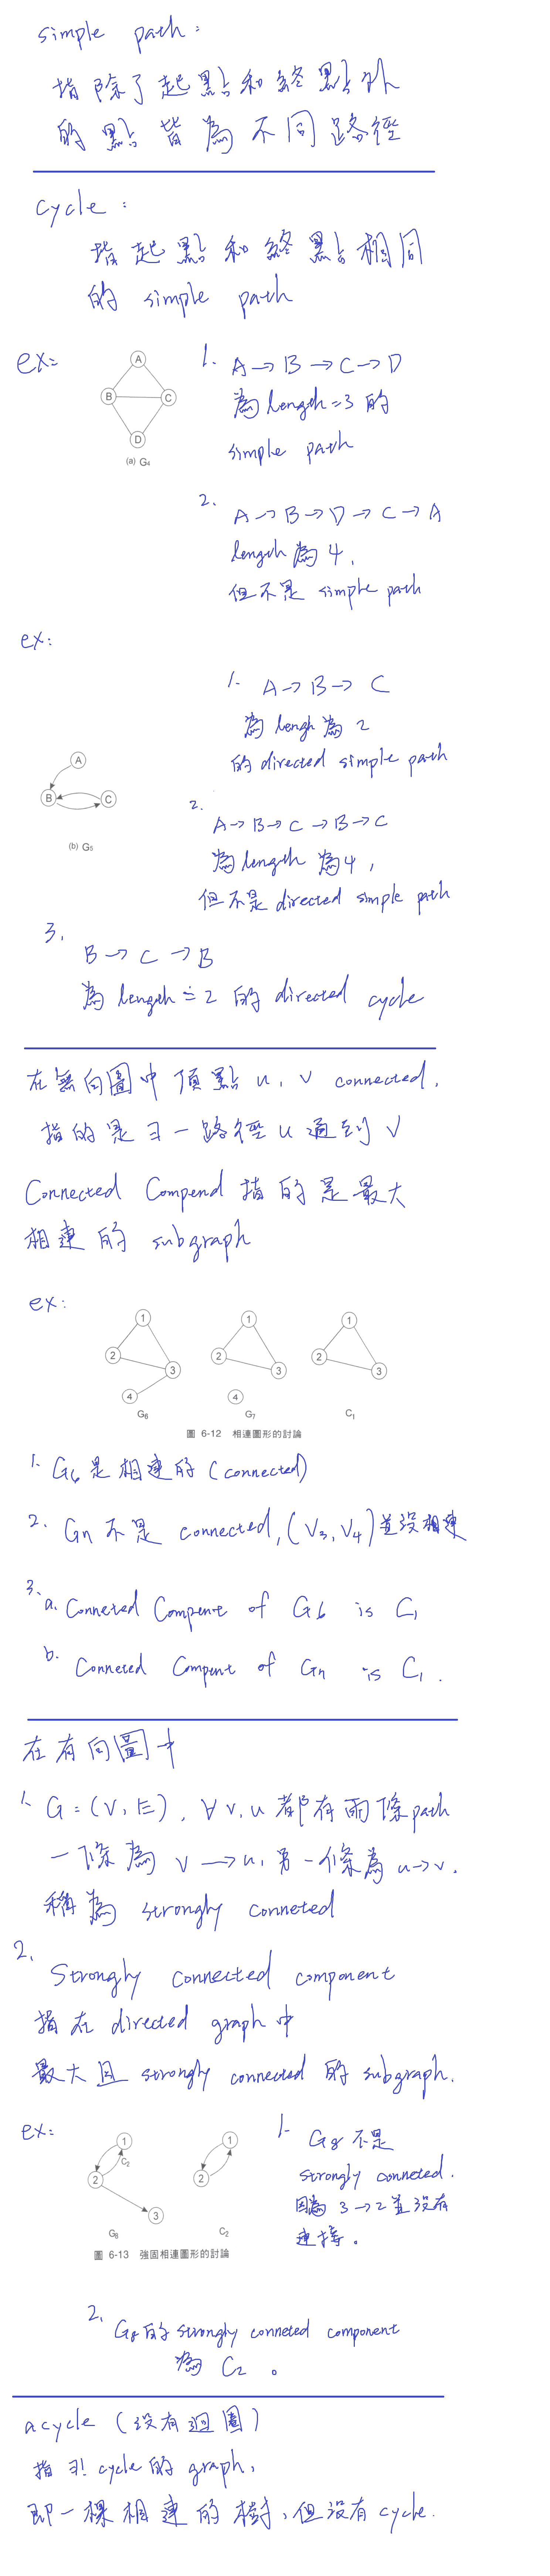 simple path:
指除了起點和終點外
的點皆為不同路徑
cycle:
指起點和終點相同
的 simple path
ex:
A
B
C
D
(a) G4
1. A→B→C→D
為length=3的
simple path
2. A→B→D→C→A
length為4,
但不是 simple path
ex:
A
B
C
(b) G5
1. A→B→C
為 lengh 為 2
的 directed simple path
2. A→B→C→B→C
為 length 為4,
但不是 directed simple path
3. B→C→B
為 length=2 的 directed cycle
在無向圖中頂點 u, v connected,
指的是∃一路徑 u 通到 v
Connected Compend 指的是最大
相連的 subgraph
ex:
1
2
3
4
G6
1
2
3
4
G7
1
2
3
C1
圖 6-12 相連圖形的討論
1. G6 是相連的 (connected)
2. Gn 不是 connected, (V3, V4) 並沒相連
3. a. Conneted Compent of G6 is C1
b. Conneted Compent of Gn is C1.
在有向圖中
1. G=(V, E), ∀ v, u 都有兩條path
一條為 v→u, 另一條為 u→v.
稱為 strongly conneted
2. Strongly connected component
指在 directed graph 中
最大且 strongly connected 的 subgraph.
ex:
1
2
3
C2
G8
1
2
C2
圖 6-13 強固相連圖形的討論
1. G8 不是
strongly conneted.
因為 3→2 並沒有
連接。
2. G8 的 strongly conneted component
為 C2 。
acycle (沒有迴圈)
指 ∃! cycle 的 graph,
即一棵相連的樹, 但沒有 cycle.